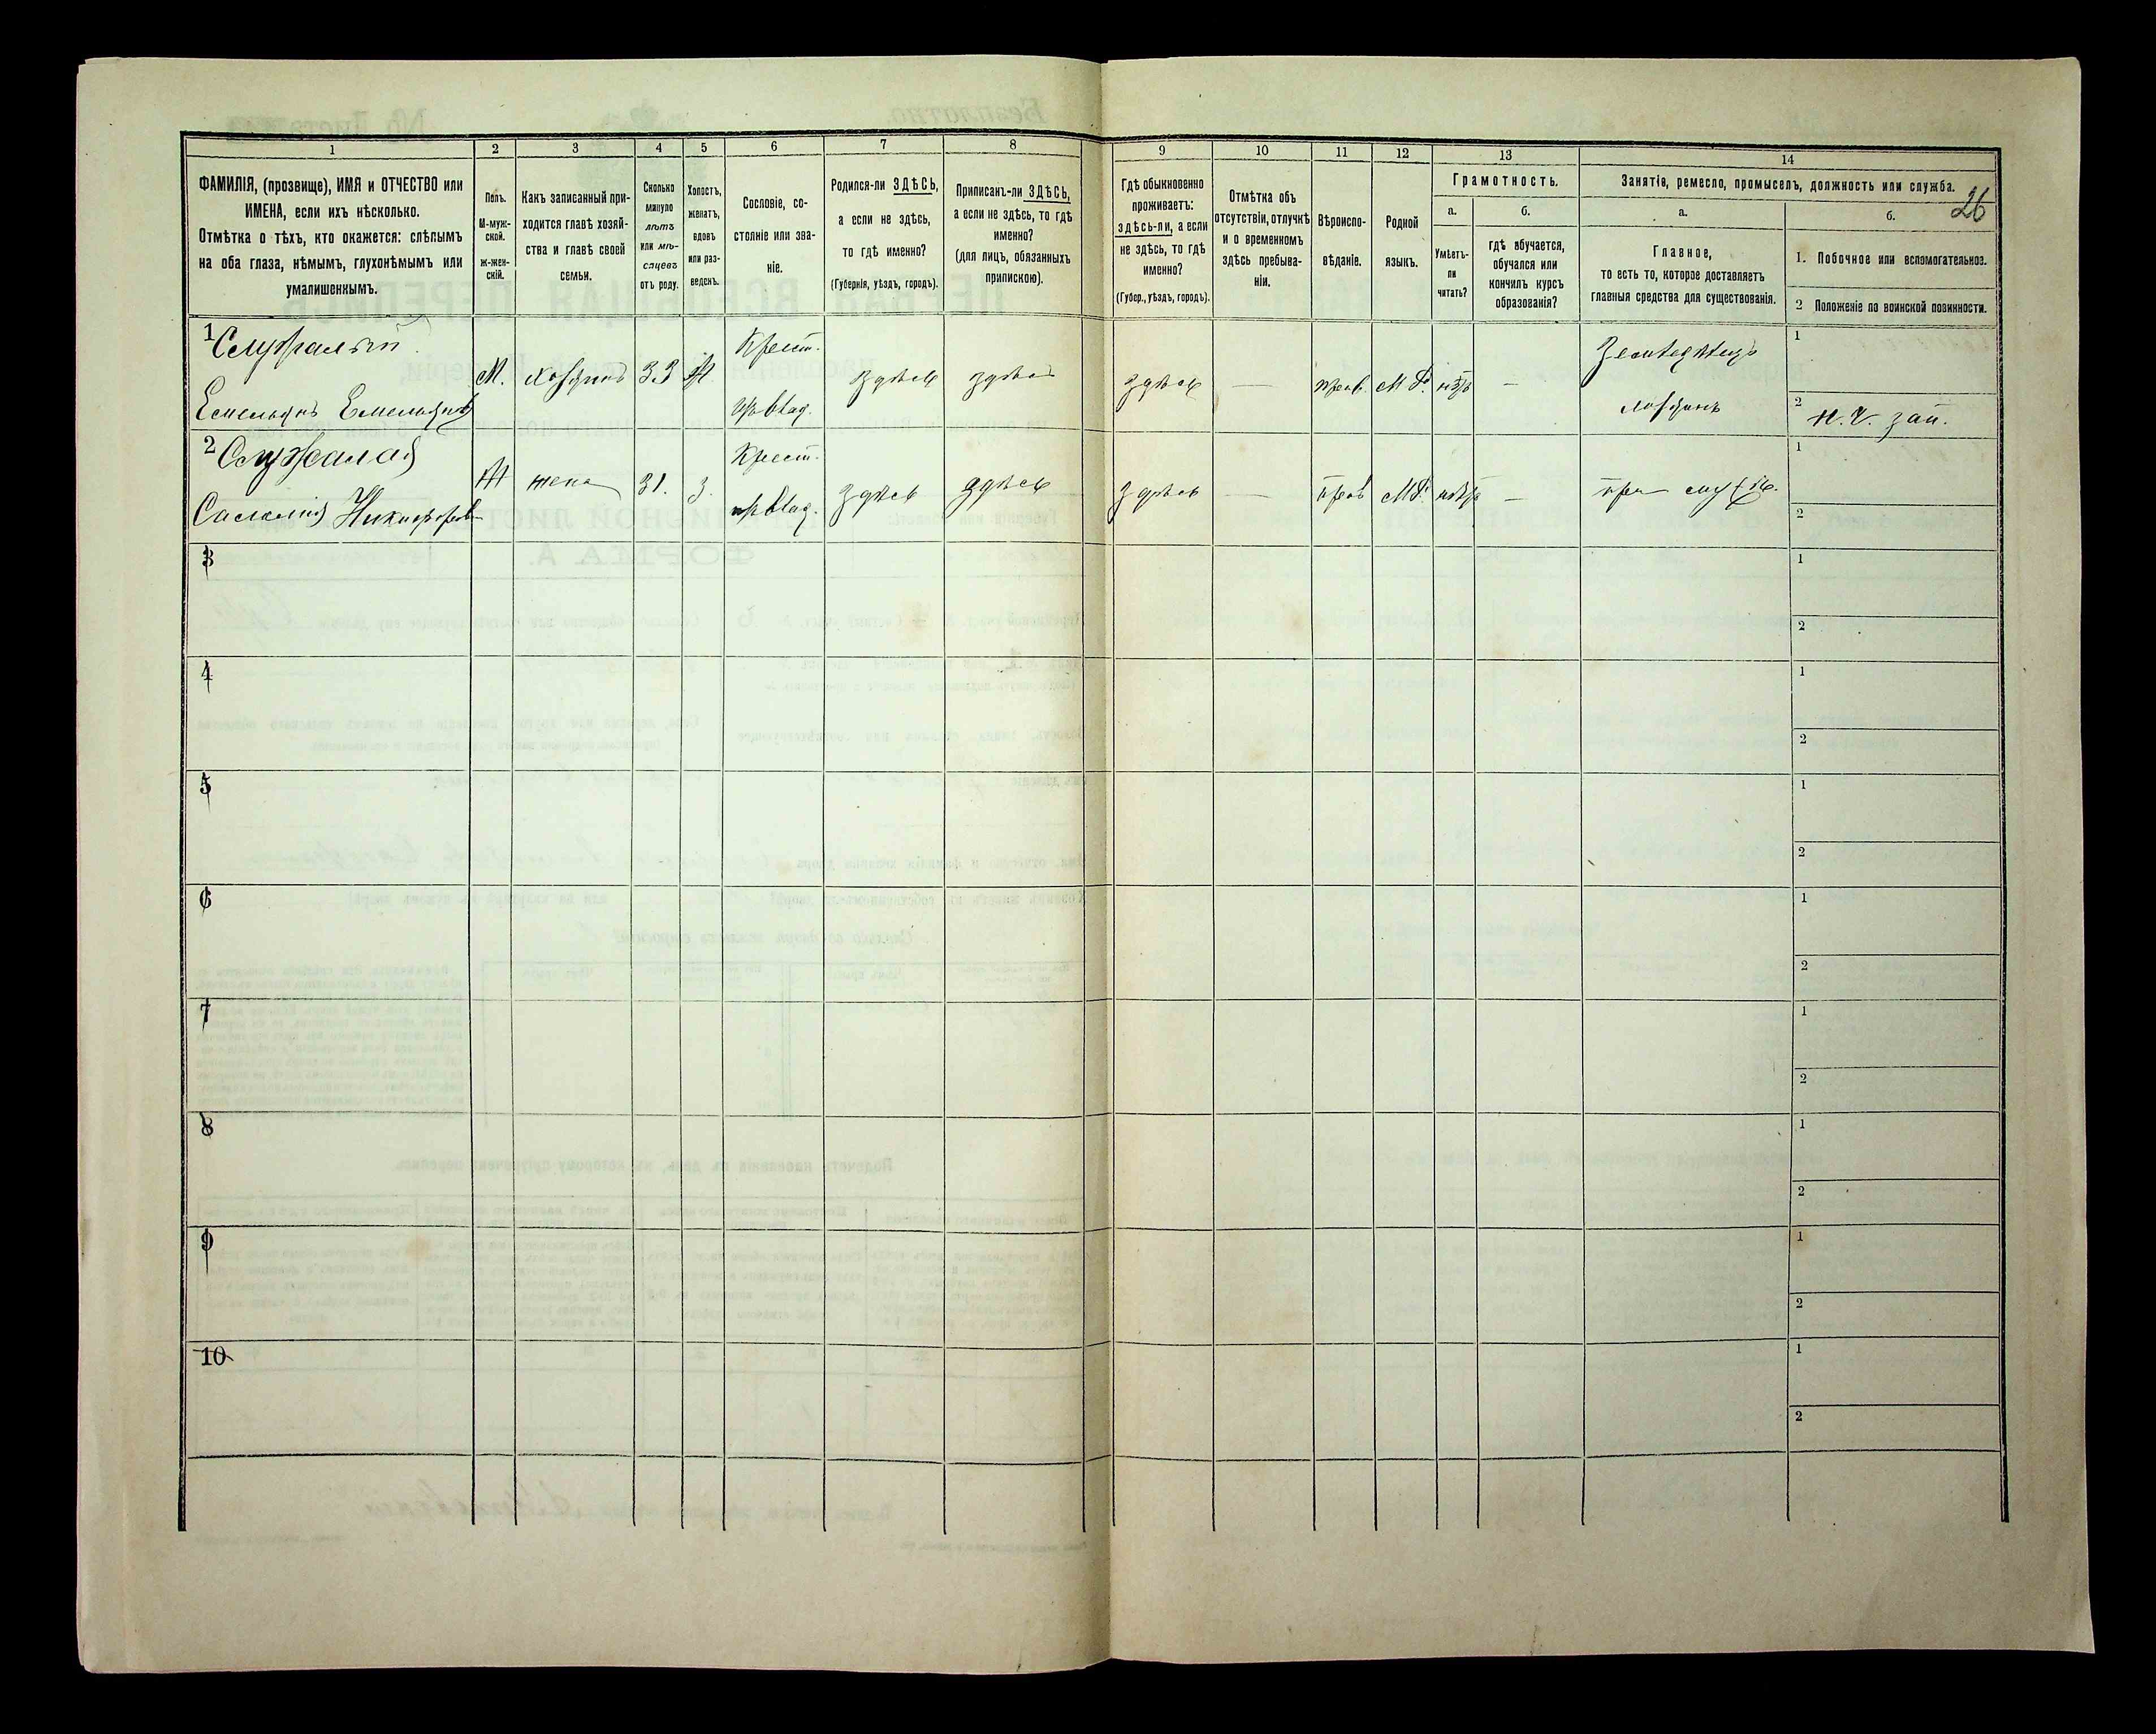 26
1 2 3 4 5 6 7 8 9 10 11 12 13 14
ФАМИЛІЯ, (прозвище), ИМЯ и ОТЧЕСТВО или
ИМЕНА, если ихъ нѣсколько.
Отмѣтка о тѣхъ, кто окажется: слѣпымъ
на оба глаза, нѣмымъ, глухонѣмымъ или
умалишеннымъ.
Полъ.
М-муж-
ской.
Ж-жен-
скій.
Какъ записанный при-
ходится главѣ хозяй-
ства и главѣ своей
семьи.
Сколько
минуло
лѣтъ
или мѣ-
сяцевъ
отъ роду.
Холостъ,
женатъ,
вдовъ
или раз-
веденъ.
Сословіе, со-
стояніе или зва-
ніе.
Родился-ли ЗДѢСЬ,
а если не здѣсь,
то гдѣ именно?
(Губернія, уѣздъ, городъ).
Приписанъ-ли ЗДѢСЬ,
а если не здѣсь, то гдѣ
именно?
(для лицъ, обязанныхъ
припискою).
Гдѣ обыкновенно
проживаетъ:
здѣсь-ли, а если
не здѣсь, то гдѣ
именно?
(Губер., уѣздъ, городъ).
Отмѣтка объ
отсутствіи, отлучкѣ
и о временномъ
здѣсь пребыва-
ніи.
Вѣроиспо-
вѣданіе.
Родной
языкъ.
Грамотность.
а.
Умѣетъ-
ли
читать?
б.
гдѣ обучается,
обучался или
кончилъ курсъ
образованія?
Занятія, ремесло, промыселъ, должность или служба.
а.
Главное,
то есть то, которое доставляетъ
главныя средства для существованія.
б.
1. Побочное или вспомогательное.
2 Положеніе по воинской повинности.
1 Служалый Крест. Земледѣлецъ 1
М. хозяинъ 33 Ж. здѣсь здѣсь здѣсь — прав. М Р. нѣтъ —
Емельянъ Емельяновъ влад. хозяинъ 2 н. ч. зап.
2 Служалая Крест. 1
Ж жена 31. З. здѣсь здѣсь здѣсь — прав МР. нѣтъ — при
Саломія Никифоров влад. 2
3 1
2
4 1
2
5 1
2
6 1
2
7 1
2
8 1
2
9 1
2
10 1
2